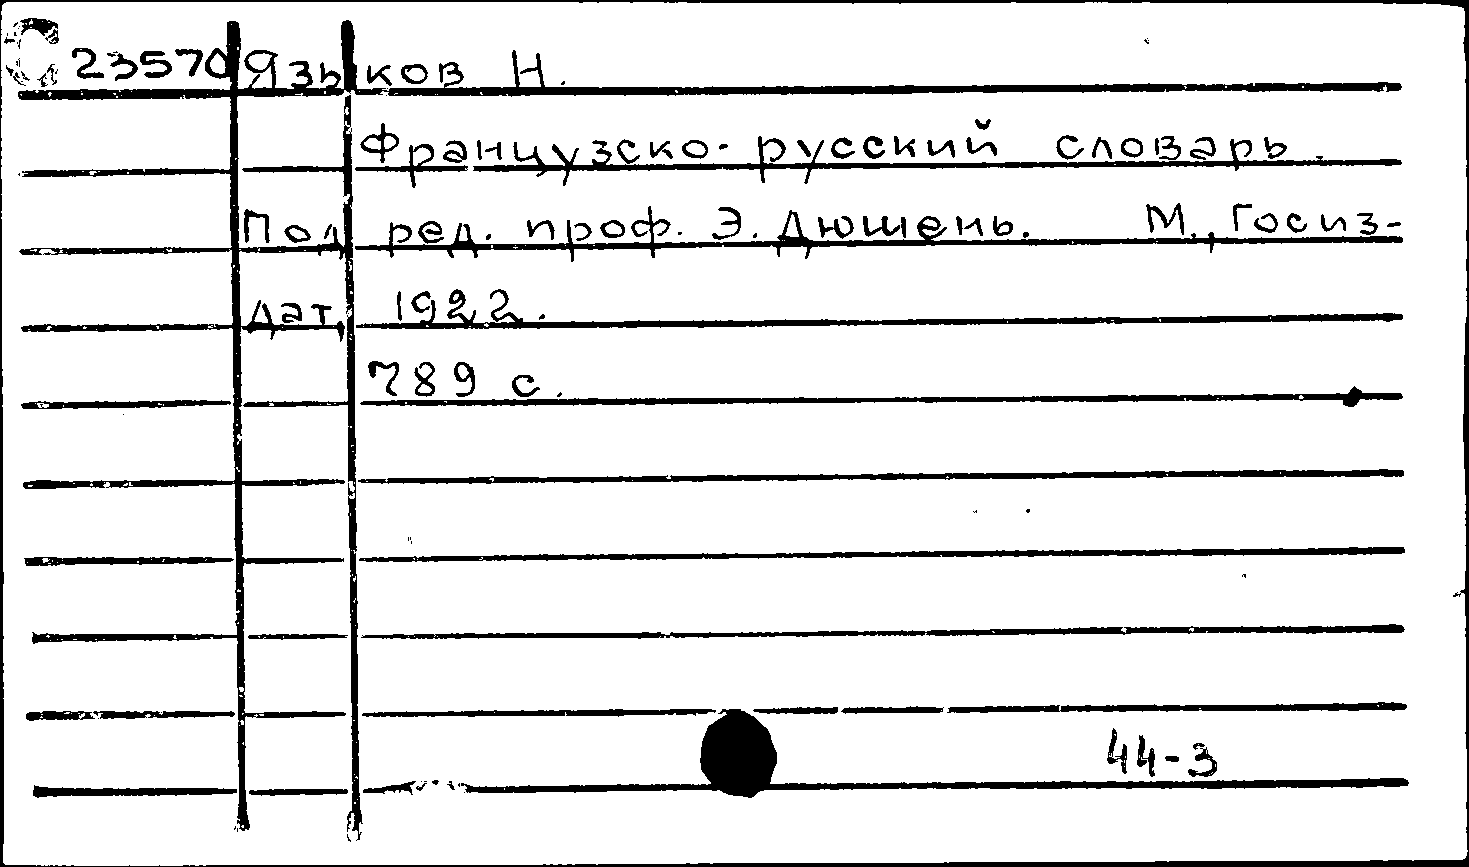 С 23570 Языков Н.
Французско-русский словарь.
Под ред. проф. Э. Дюшень. М., Госиз-
дат, 1922.
789 с.
44-3